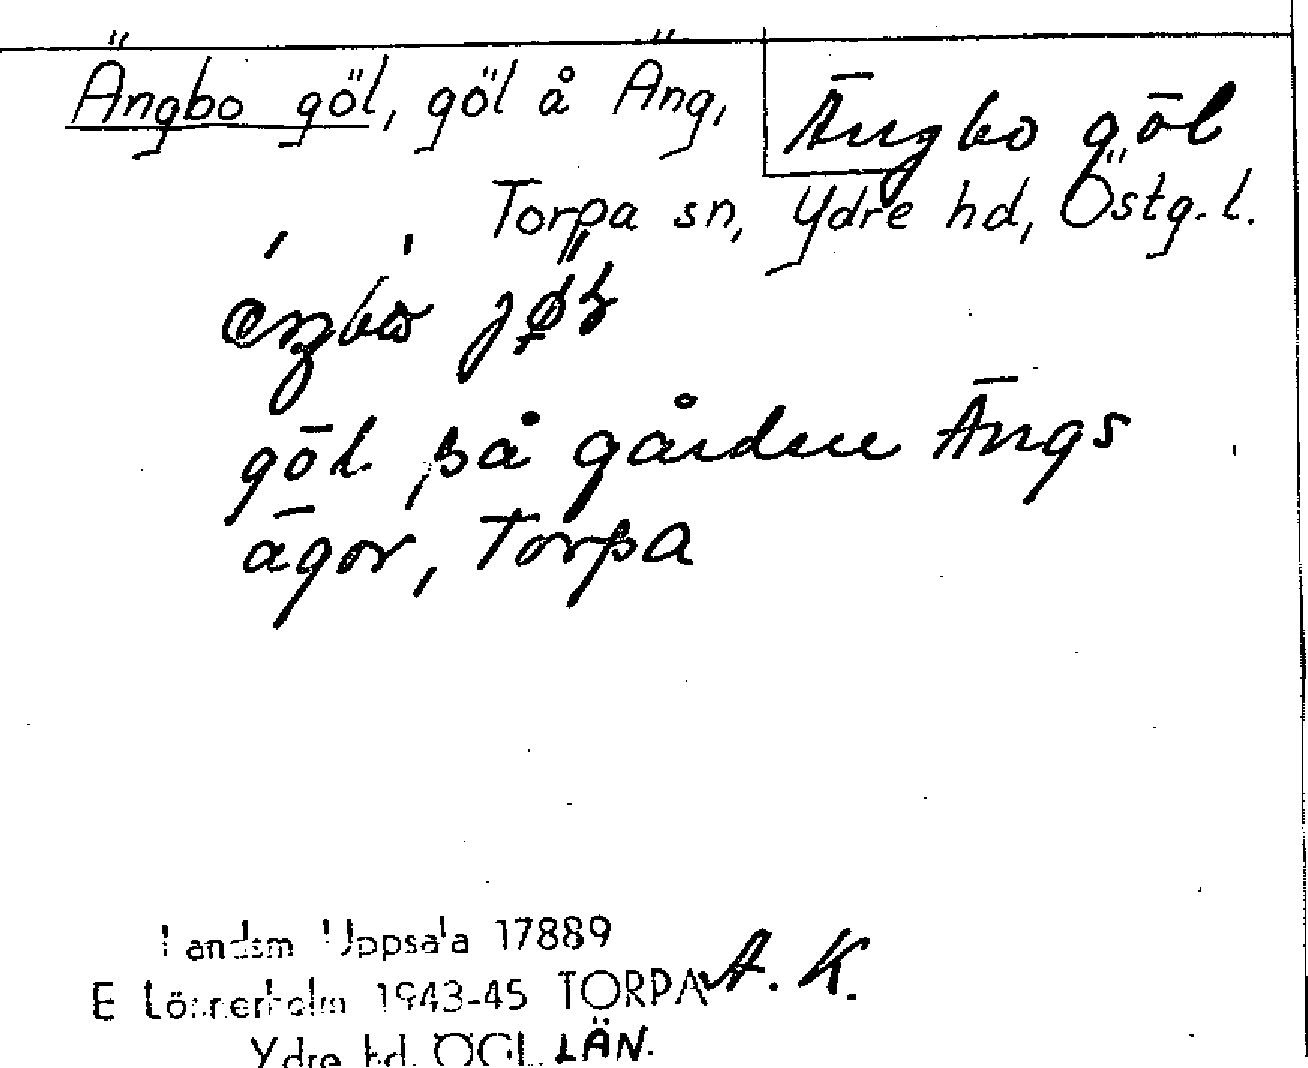 Ängbo göl, göl å Äng,
Ängbo göl
Torpa sn, Ydre hd, Östg. l.
göl på gården Ängs
ägor, Torpa
Landsm Uppsala 17889
E Lönnerholm 1943-45 TORPA A. K.
Ydre hd. ÖGL. LÄN.